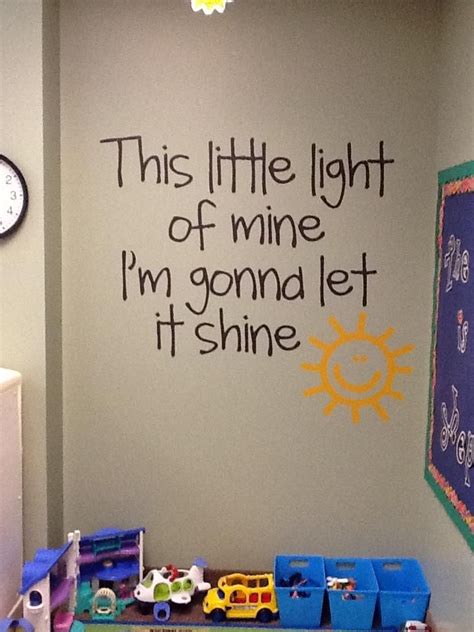 This little light
of mine
I'm gonna let
it shine
2
3
4
The
is
my
Shep